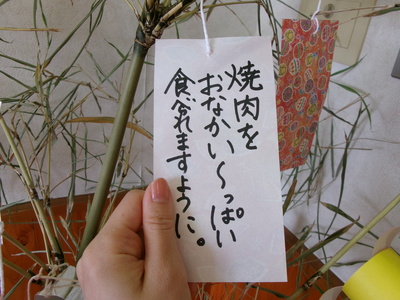 焼肉を
おなかい〜っぱい
食べれますように。